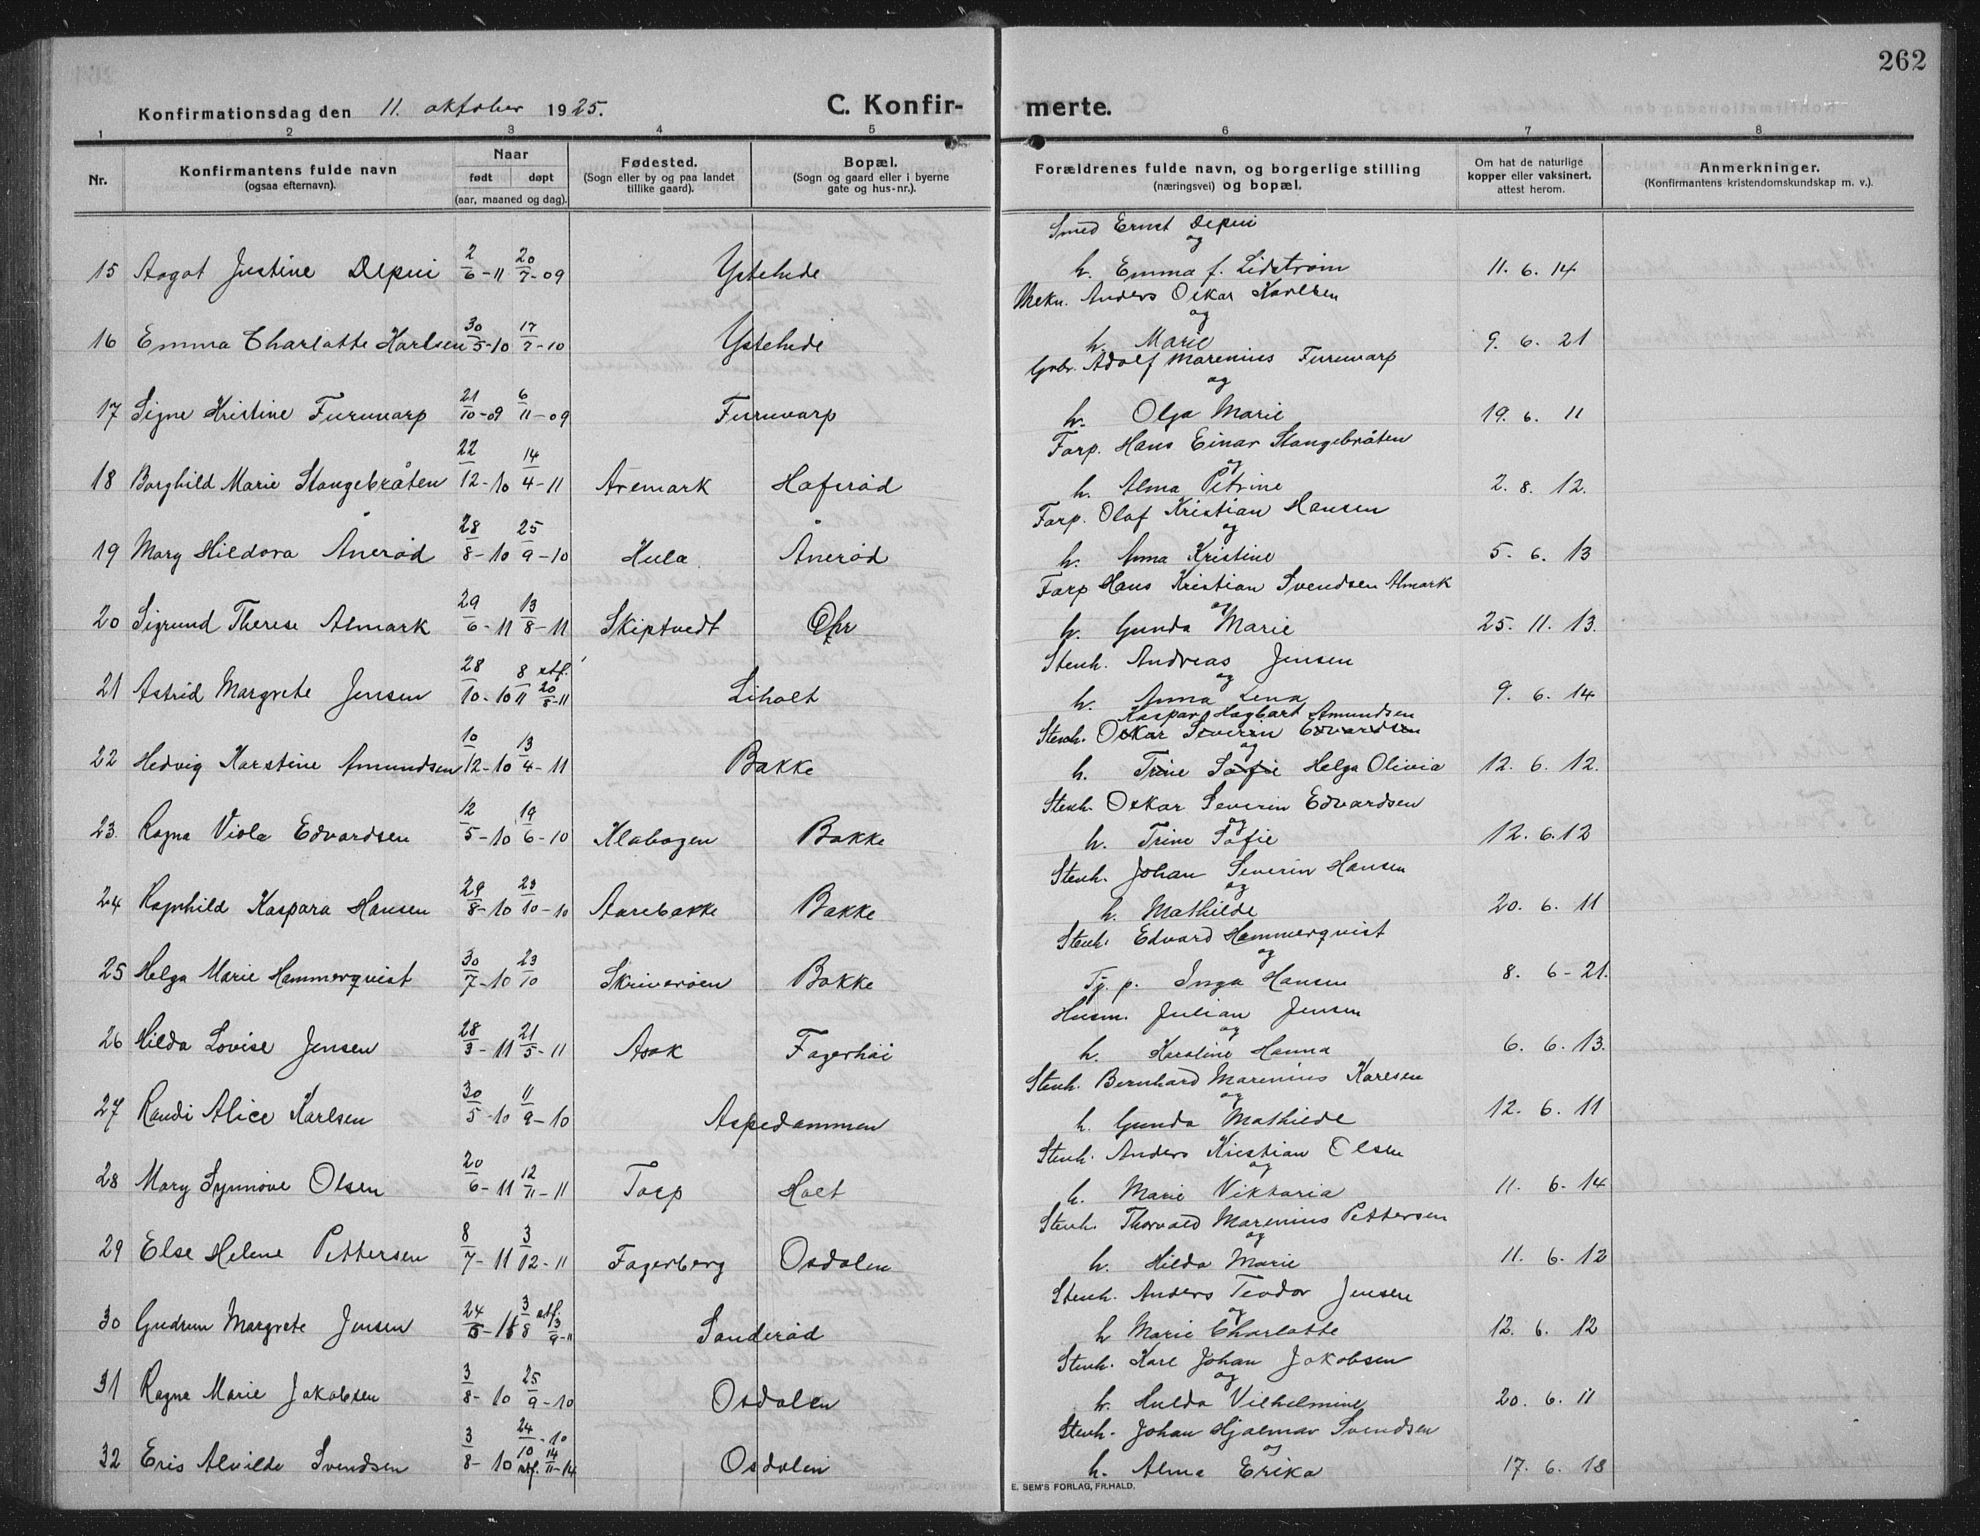 262
Konfirmationsdag den 11. oktober 1925. C. Konfir- merte.
1 2 3 4 5 6 7 8
Nr. Konfirmantens fulde navn (ogsaa efternavn). Naar født døpt (aar, maaned og dag). Fødested. (Sogn eller by og paa landet tillike gaard). Bopæl. (Sogn og gaard eller i byerne gate og hus-nr.). Forældrenes fulde navn, og borgerlige stilling (næringsvei) og bopæl. Om hat de naturlige kopper eller vaksinert, attest herom. Anmerkninger. (Konfirmantens kristendomskundskap m. v.).
Smed Ernst Depui
og
15 Aagot Justine Depui 2/6-11 20/7-09 Ystehede h. Emma f. Lidstrøm 11. 6. 14
Mekn. Anders Oskar Karlsen
og
16 Emma Charlotte Karlsen 30/5-10 17/7-10 Ystehede h. Marie 9. 6. 21
Grbr. Adolf Marenius Furuvarp
og
17 Signe Kristine Furuvarp 21/10-09 6/11-09 Furuvarp h. Olga Marie 19. 6. 11
Forp. Hans Einar Stangebråten
og
18 Borghild Marie Stangebråten 22/12-10 14/4-11 Aremark Hafsrød h. Alma Petrine 2. 8. 12.
Forp. Olaf Kristian Hansen
og
19 Mary Hildora Ånerød 28/8-10 25/9-10 Hula Ånerød h. Anna Kristine 5. 6. 13
Forp Hans Kristian Svendsen Almark
og
20 Sigrund Therese Almark 29/6-11 13/8-11 Skiptvedt h. Gunda Marie 25. 11. 13.
Stenh. Andreas Jensen
og
21 Astrid Margrete Jensen 28/10-10 8/11 stf. 20/8-11 Liholt h. Anna Lena 9. 6. 14
Kaspar Hagbart Amundsen
Stenh. Oskar Severin Edvardsen
og
22 Hedvig Karstine Amundsen 10/12-10 13/4-11 Bakke h. Trine Sofie Helga Olivia 12. 6. 12.
Stenh. Oskar Severin Edvardsen
og
23. Ragna Viola Edvardsen 12/5-10 19/6-10 Klabogen Bakke h. Trine Sofie 12. 6. 12
Stenh. Johan Severin Hansen
og
24 Ragnhild Kaspara Hansen 29/8-10 23/10-10 Aarebakke Bakke h. Mathilde 20. 6. 11
Stenh. Edvard Hammerqvist
og
25 Helga Marie Hammerqvist 30/7-10 23/10 Skriverøen Bakke Tj. p. Inga Hansen 8. 6-21.
Husm. Julian Jensen
og
26 Hilda Lovise Jensen 28/3-11 21/5-11 Asak Fagerhøi h. Karoline Hanna 6. 6. 13.
Stenh. Bernhard Marenius Karlsen
og
27 Randi Alice Karlsen 30/5-10 11/9-10 Aspedammen h. Gunda Mathilde 12. 6. 11
Stenh. Anders Kristian Olsen
og
28 Mary Synnøve Olsen 20/6-11 12/11-11 Torp Holt h. Marie Viktoria 11. 6-14
Stenh. Thorvald Marenius Pettersen
og
29 Else Helene Pettersen 8/7-11 3/12-11 Fagerberg Osdalen h. Hilda Marie 11. 6. 12
Stenh. Anders Teodor Jensen
og
30 Gudrun Margrete Jensen 3/8 stf. 3/9-11 Sanderød h Marie Charlotte 12. 6. 12
Stenh. Karl Johan Jakobsen
og
31 Ragna Marie Jakobsen 3/8-10 25/9-10 Osdalen h. Hulda Vilhelmine 20. 6. 11
Stenh. Johan Hjalmar Svendsen
og
32 Eris Alvilde Svendsen 3/8-10 24/10-10 stf. 14/11-14 Osdalen h. Alma Erika 17. 6. 18
E. SEM'S FORLAG, FR.HALD.